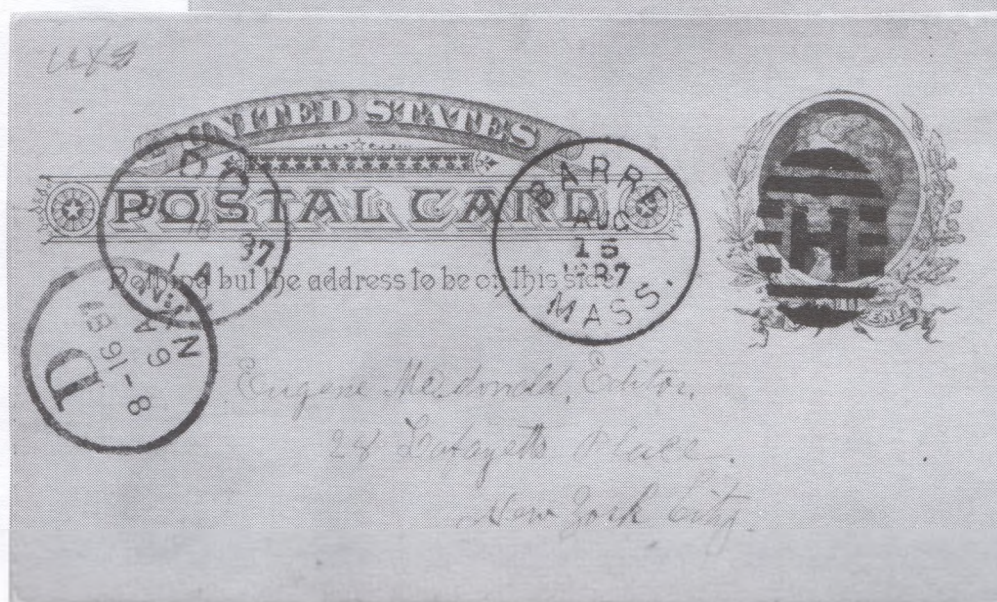 UNITED STATES
POSTAL CARD
Nothing but the address to be on this side.
BARRE
AUG
15
1887
MASS.
H
87
N.Y.
8-16 87
9 A
D
Eugene Macdonald, Editor,
28 Lafayette Place.
New York City.